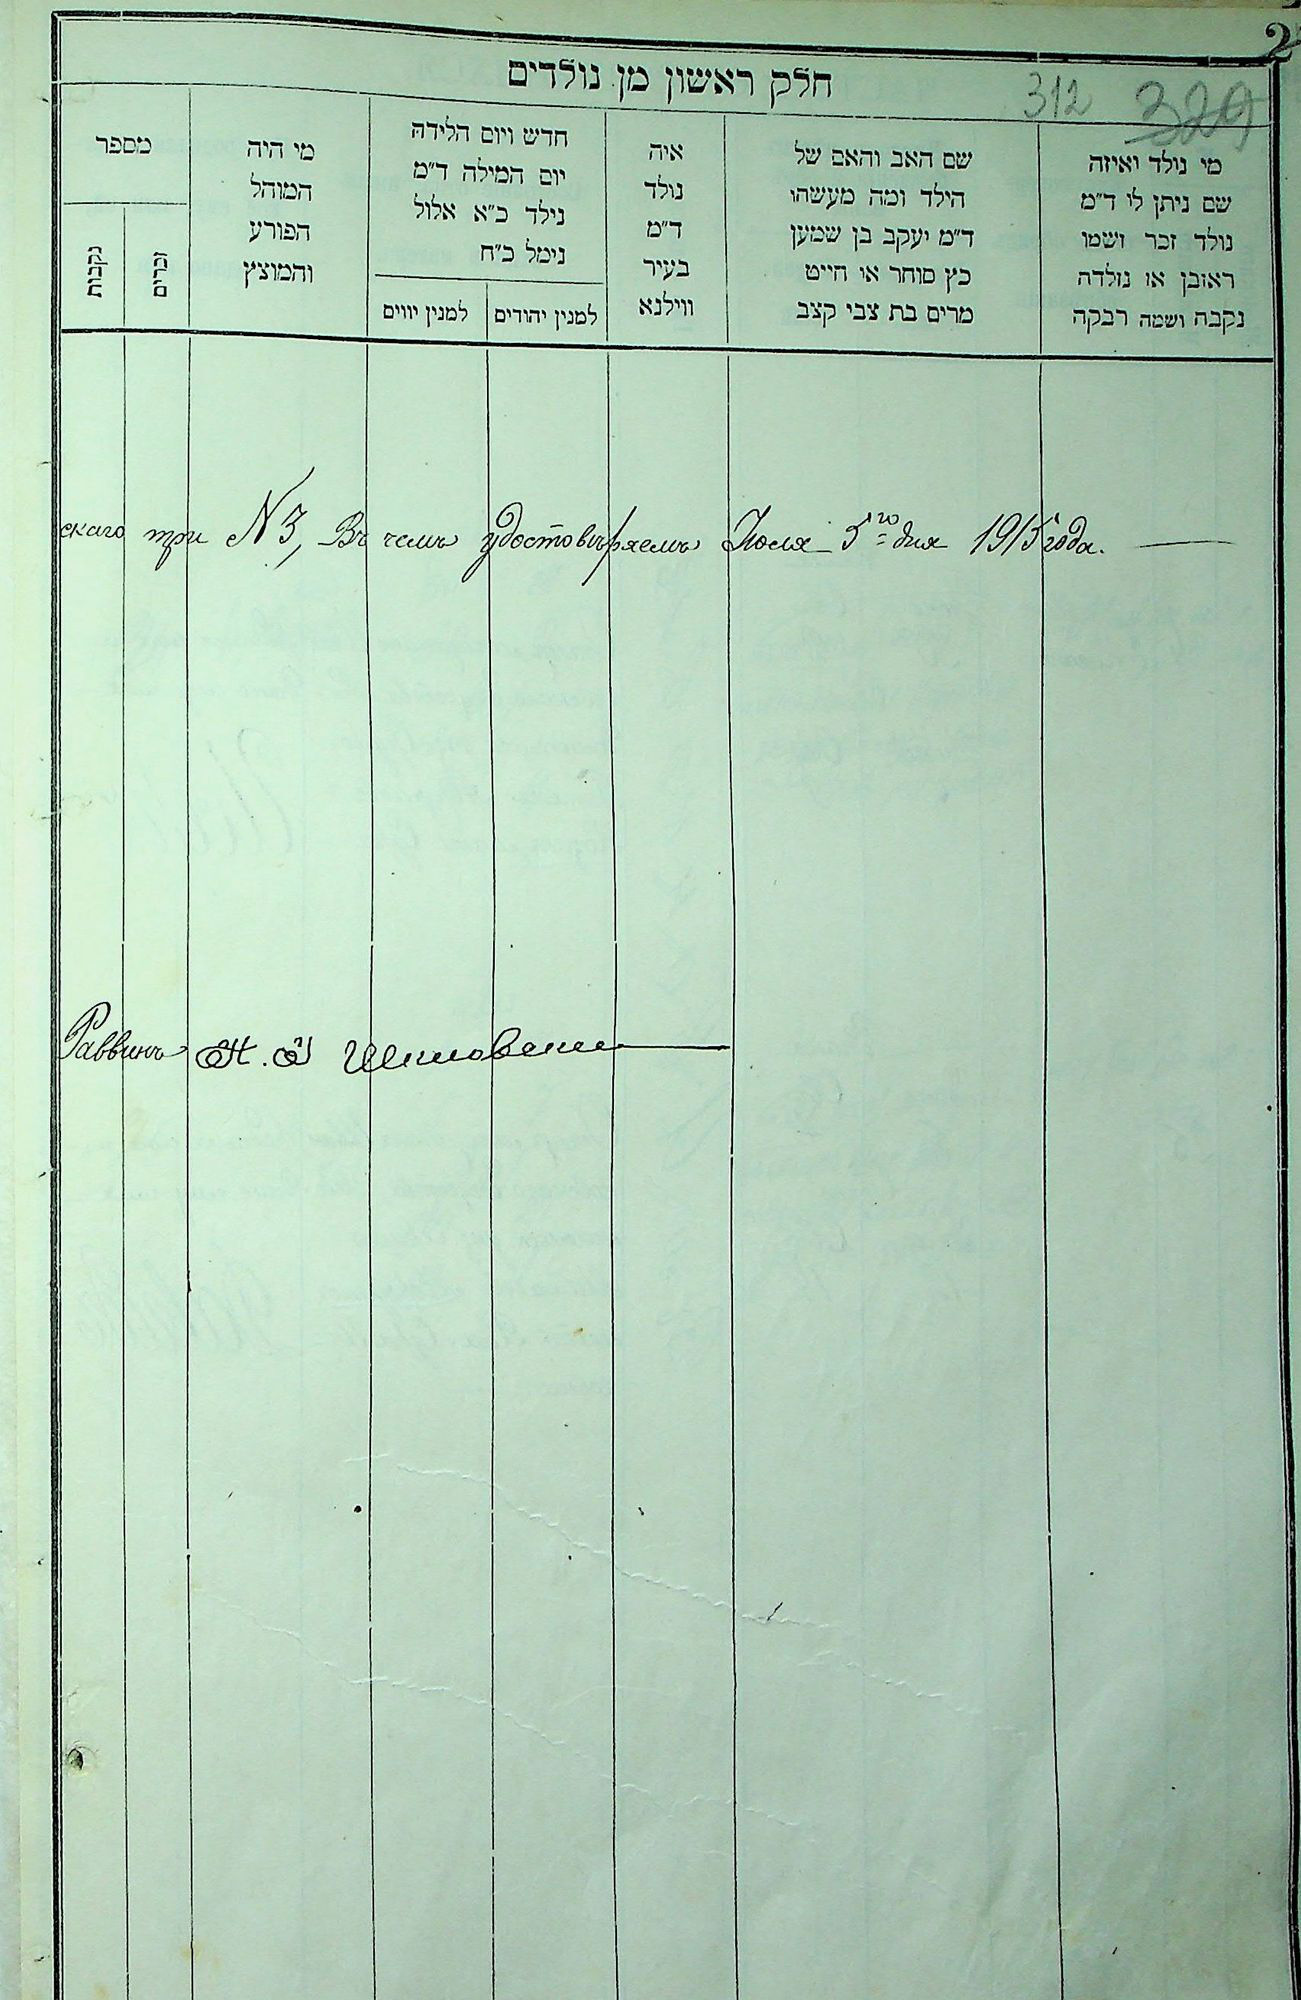 2
חלק ראשון מן נולדים
312 329
מי נולד ואיזה
שם ניתן לו ד״מ
נולד זכר ושמו
ראובן או נולדה
נקבה ושמה רבקה
שם האב והאם של
הילד ומה מעשהו
ד״מ יעקב בן שמען
כץ סוחר או חייט
מרים בת צבי קצב
איה
נולד
ד״מ
בעיר
ווילנא
חדש ויום הלידה
יום המילה ד״מ
נילד כ״א אלול
נימל כ״ח
למנין יהודים
למנין יווים
מי היה
המוהל
הפורע
והמוצץ
מספר
זכרים
נקבות
скаго три №3, Въ чемъ удостовѣряемъ Іюля 5го дня 1915 года.
Раввинъ